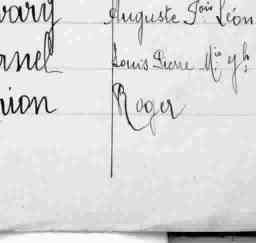 vary Auguste Fois Léon
rnel Louis Pierre Mie
rion Roger